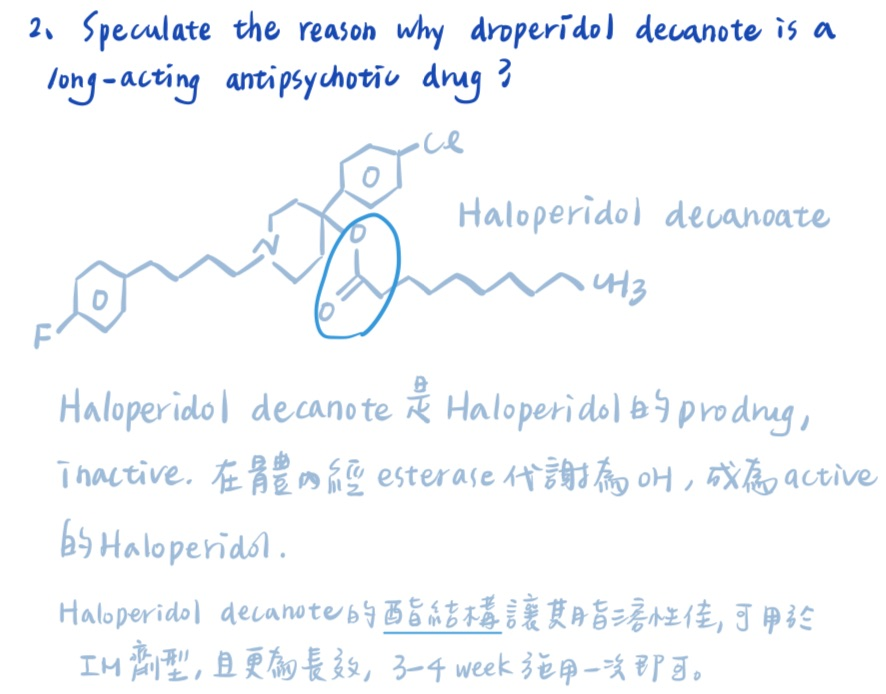 2、Speculate the reason why droperidol decanote is a
long-acting antipsychotic drug?
Cl
O
Haloperidol decanoate
N
O
O
CH3
O
F
Haloperidol decanote 是 Haloperidol 的 prodrug,
inactive. 在體內經 esterase 代謝為 OH, 成為 active
的 Haloperidol.
Haloperidol decanote 的酯結構讓其脂溶性佳, 可用於
IM 劑型, 且更為長效, 3-4 week 施用一次即可。